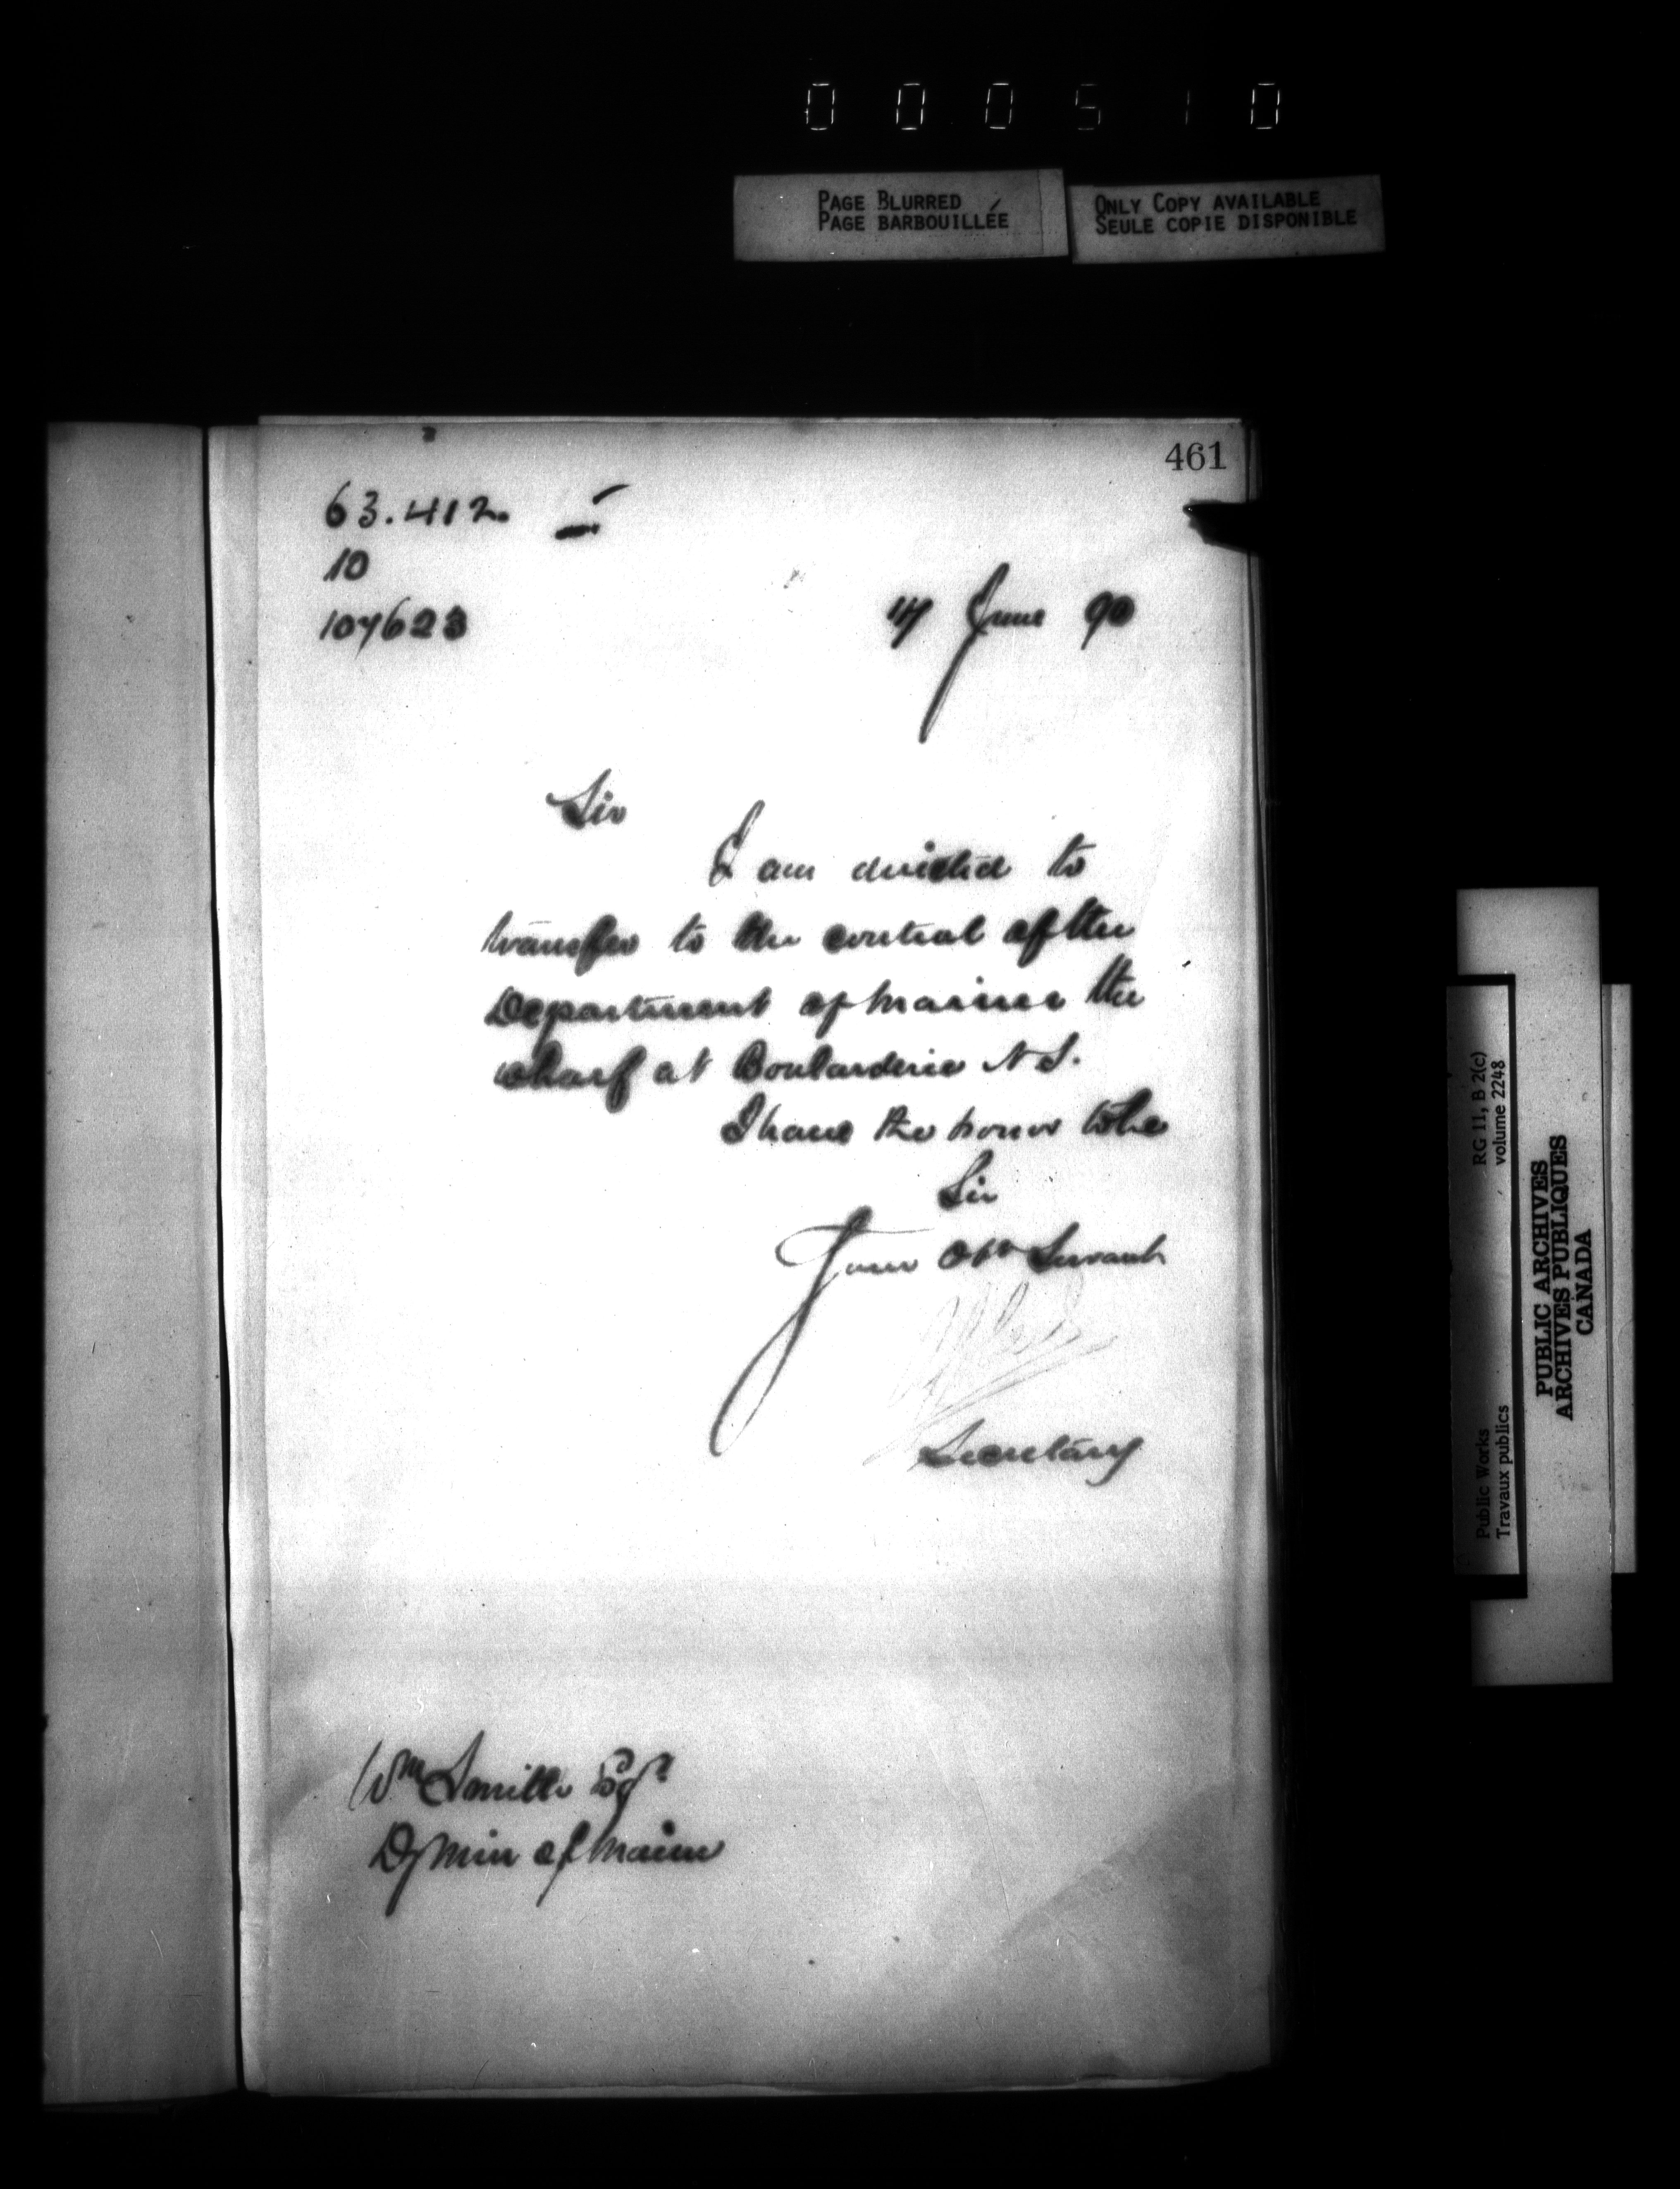 000510
PAGE BLURRED
PAGE BARBOUILLÉE
ONLY COPY AVAILABLE
SEULE COPIE DISPONIBLE
461
63.412.
10
107623
June 90
Sir
I am directed to
transfer to the control of the
Department of Marine the
wharf at Boularderie N S.
I have the honor to be
Sir
Your Obt Servant
Secretary
Wm Smith Esqr
Dy Min of Marine
Public Works
Travaux publics
RG 11, B 2(c)
volume 2248
PUBLIC ARCHIVES
ARCHIVES PUBLIQUES
CANADA